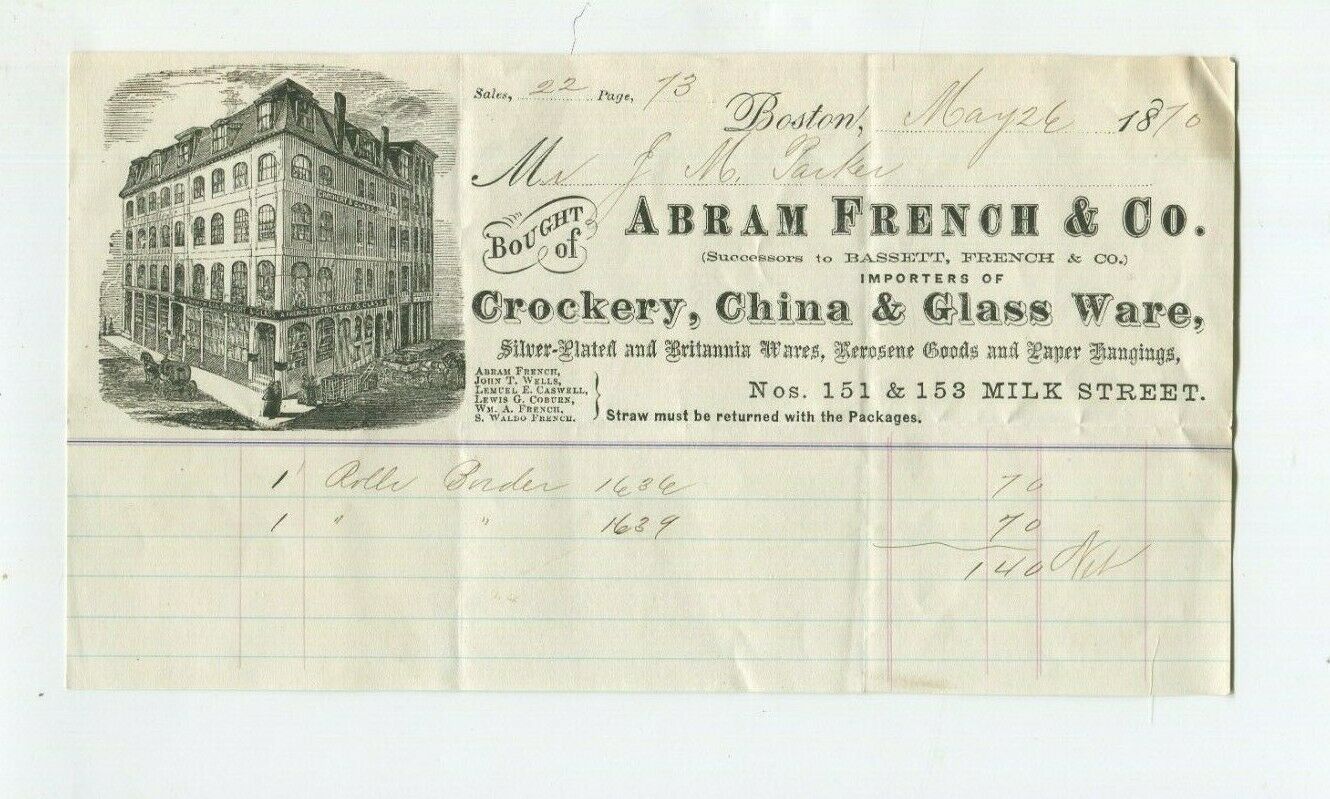 Sales, 22 Page, 73
Boston, May 26 1870
Mr J. M. Parker
BOUGHT of
ABRAM FRENCH & CO.
(Successors to BASSETT, FRENCH & CO.)
IMPORTERS OF
Crockery, China & Glass Ware,
Silver-Plated and Britannia Wares, Kerosene Goods and Paper Hangings,
ABRAM FRENCH,
JOHN T. WELLS,
LEMUEL E. CASWELL,
LEWIS G. COBURN,
WM. A. FRENCH,
S. WALDO FRENCH.
Nos. 151 & 153 MILK STREET.
Straw must be returned with the Packages.
1 Rolls Border 1636 70
1 " " 1639 70
140 Net